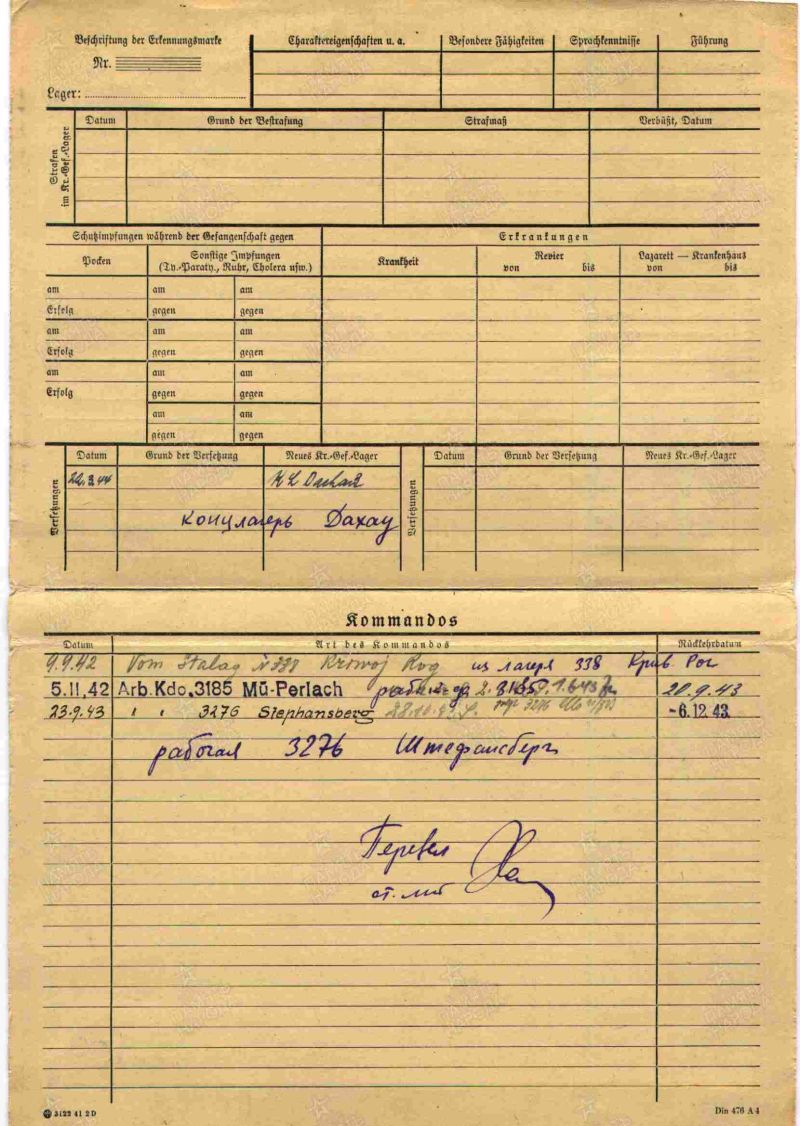 Beschriftung der Erkennungsmarke
Nr.
Lager:
Charaktereigenschaften u. a. Besondere Fähigkeiten Sprachkenntnisse Führung
Strafen im Kr.-Gef.-Lager
Datum Grund der Bestrafung Strafmaß Verbüßt, Datum
Schutzimpfungen während der Gefangenschaft gegen Erkrankungen
Pocken Sonstige Impfungen Krankheit Revier Lazarett — Krankenhaus
(Ty.-Paraty., Ruhr, Cholera usw.) von bis von bis
am am am
Erfolg gegen gegen
am am am
Erfolg gegen gegen
am am am
Erfolg gegen gegen
am am
gegen gegen
Versetzungen
Datum Grund der Versetzung Neues Kr.-Gef.-Lager
22.3.44 K L Dachau
концлагерь Дахау
Versetzungen
Datum Grund der Versetzung Neues Kr.-Gef.-Lager
Kommandos
Datum Art des Kommandos Rückkehrdatum
9.9.42 Vom Stalag N 338 Kriwoj Rog из лагеря 338 Крив. Рог
5.11.42 Arb.Kdo.3185 Mü-Perlach 20.9.43
23.9.43 " " 3276 Stephansberg -6.12.43
рабочая 3276 Штефансберг
Перевел
ст. л-т
3122 41 2 D
Din 476 A 4